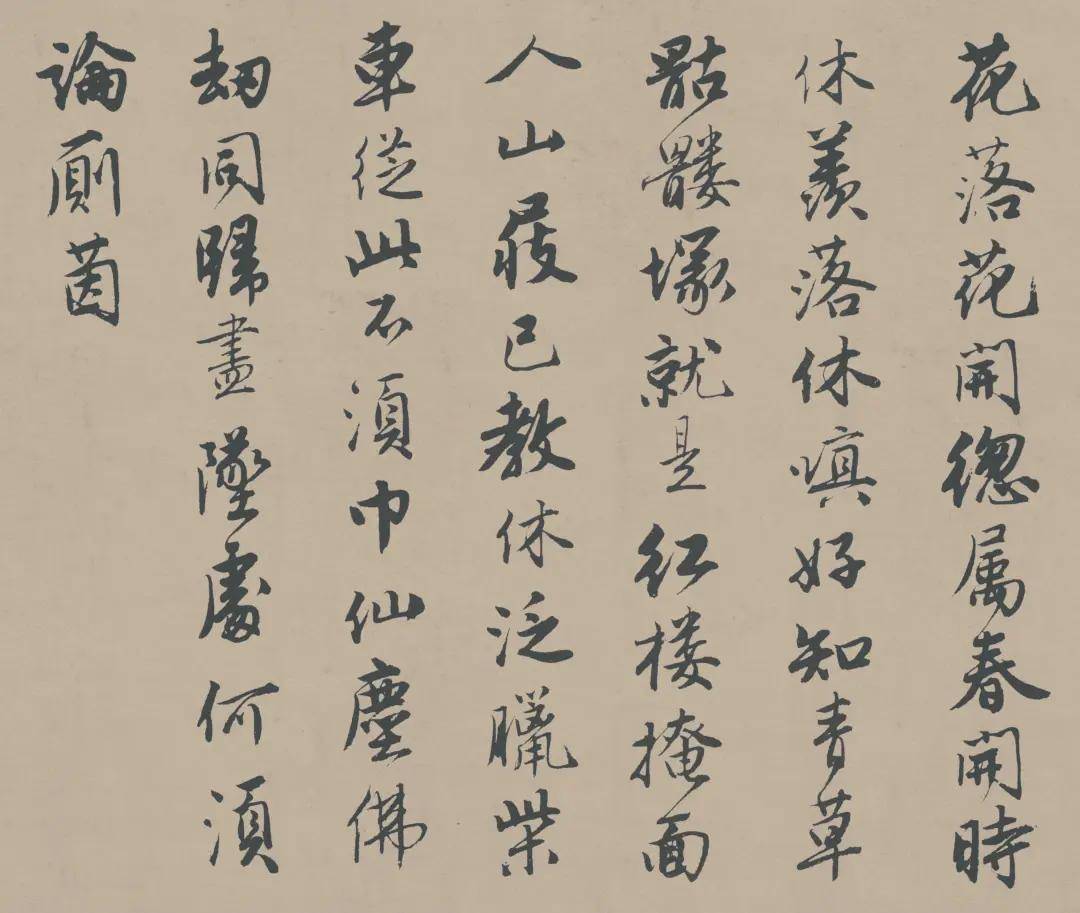 花落花開總属春開時
休羨落休嗔好知青草
骷髏塚就是紅樓掩面
人山屐已教休泛臘柴
車從此不須巾仙塵佛
劫同歸盡墜處何須
論厠茵